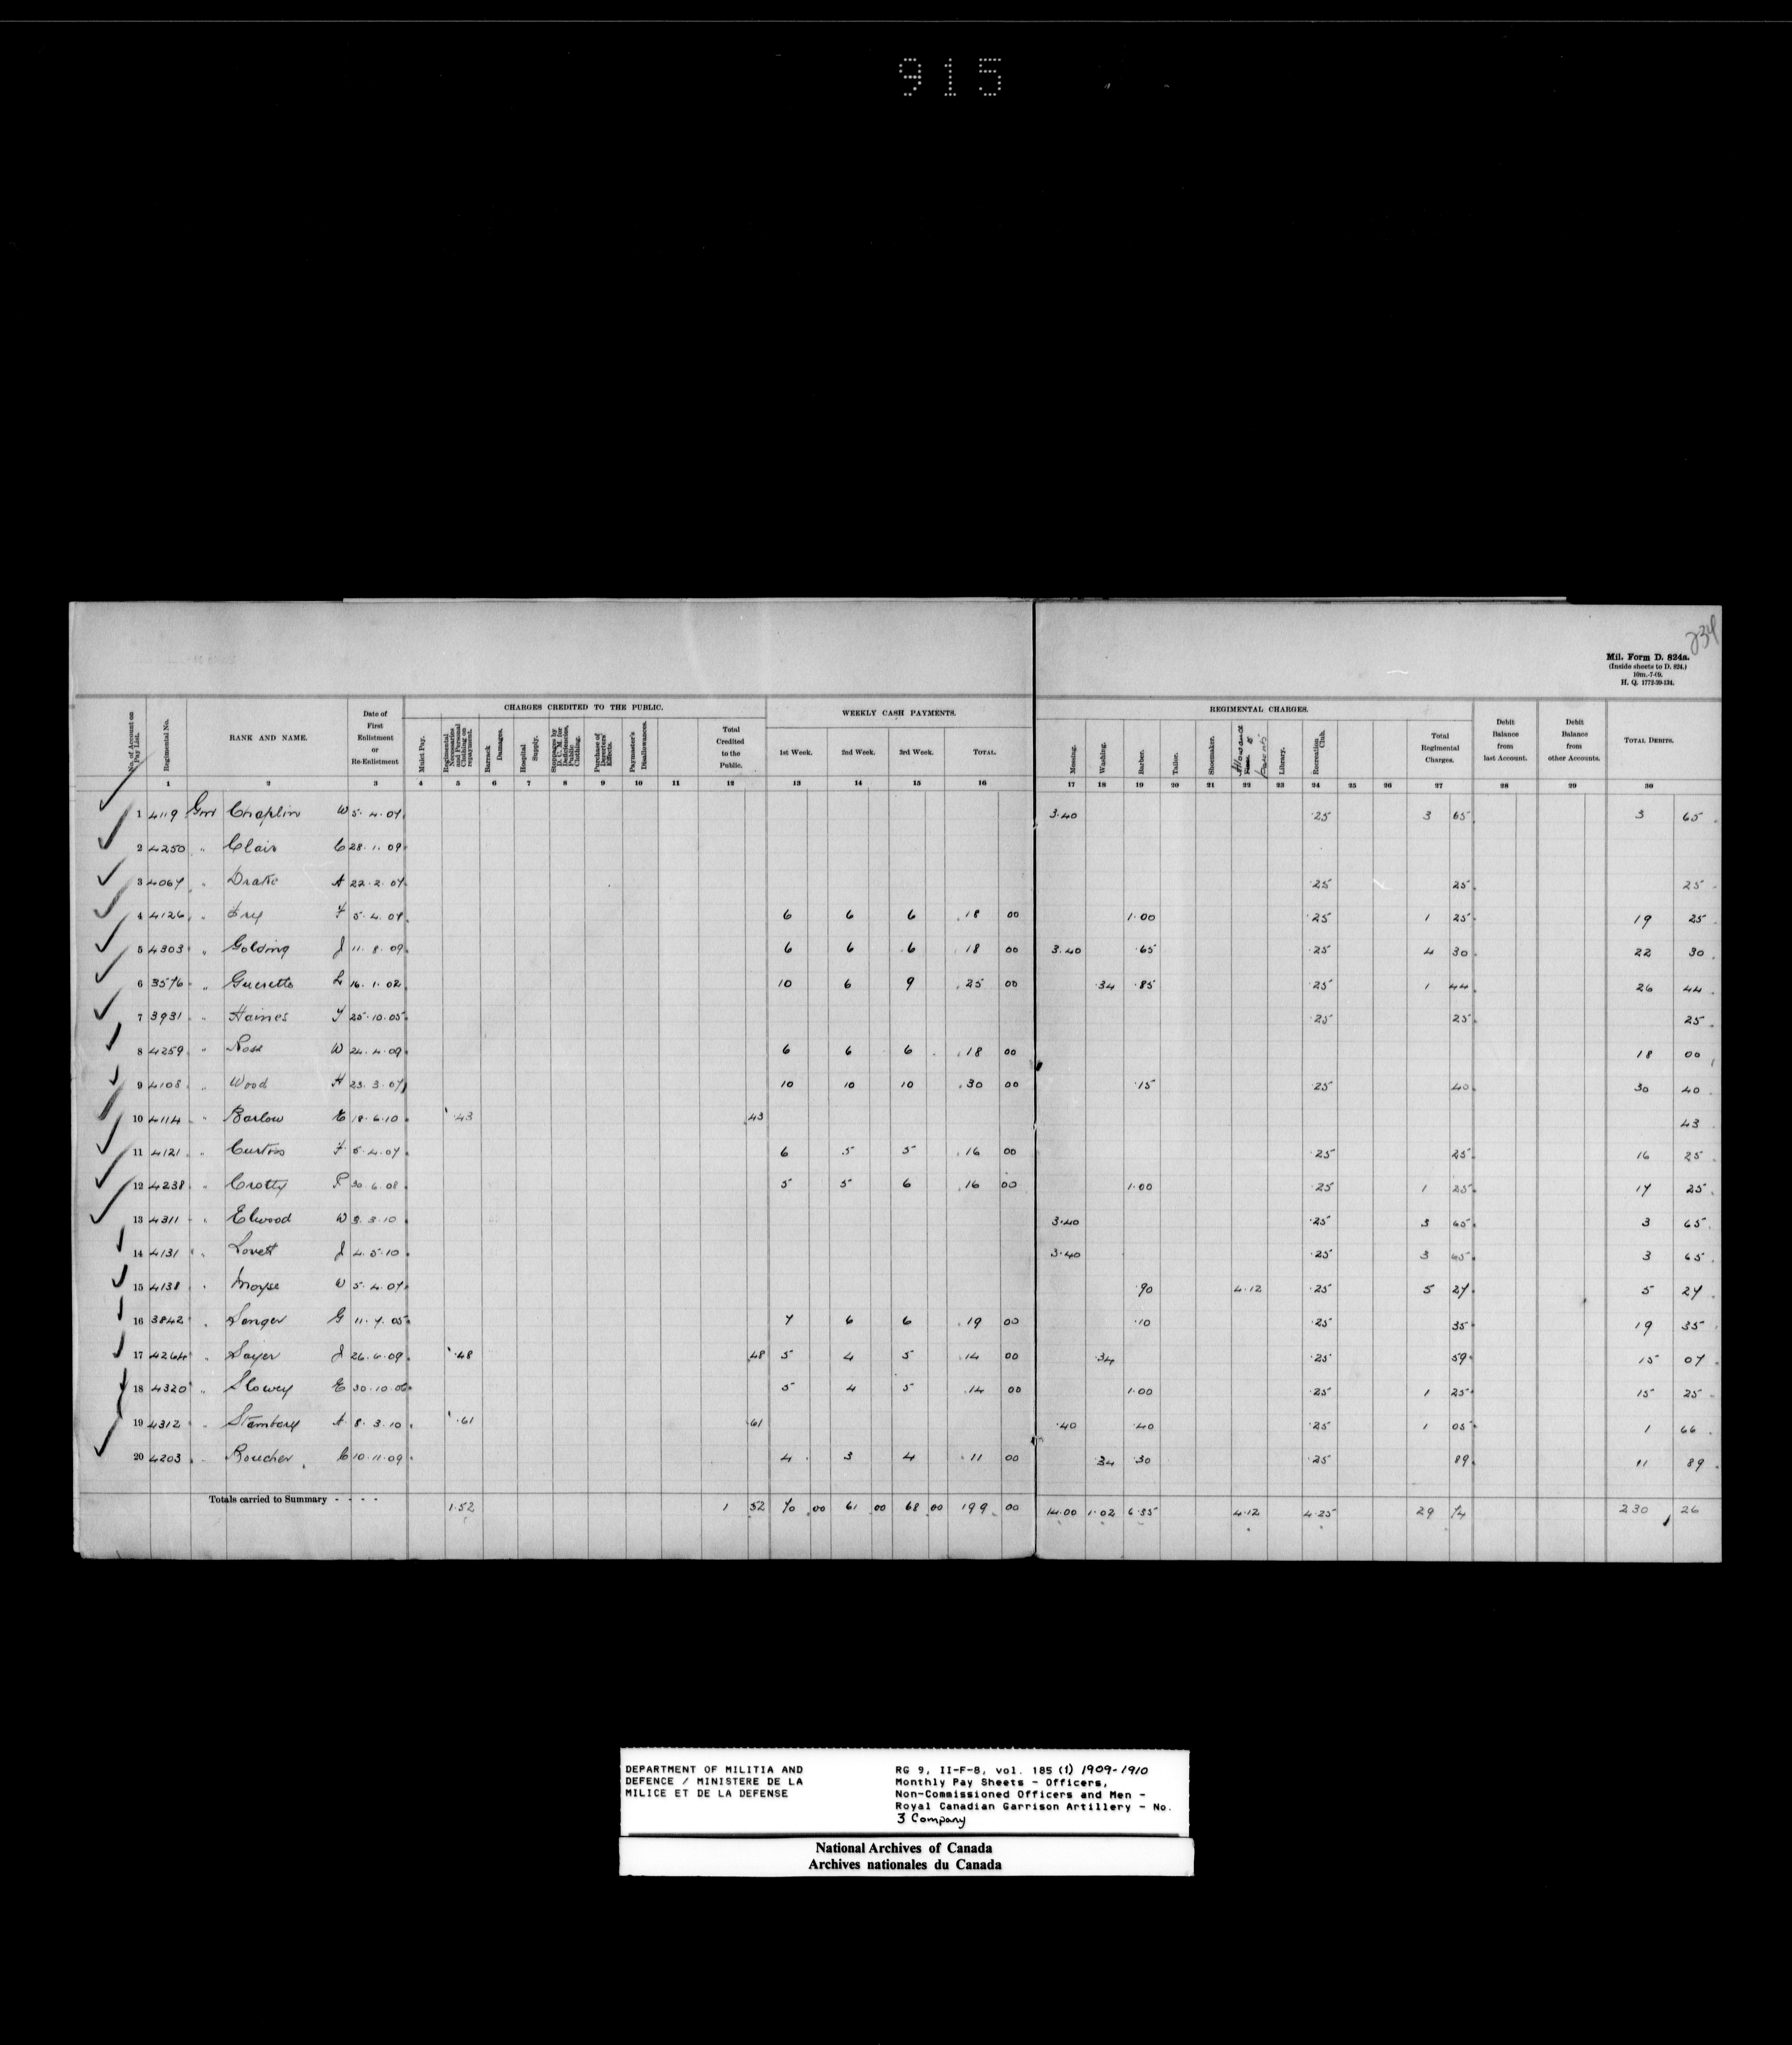 915
234
Mil. Form D. 824a.
(Inside sheets to D. 824.)
10m.-7-09.
H. Q. 1772-39-134.
CHARGES CREDITED TO THE PUBLIC. WEEKLY CASH PAYMENTS. REGIMENTAL CHARGES.
No. of Account on Pay List. Regimental No. RANK AND NAME. Date of First Enlistment or Re-Enlistment Mulct Pay. Regimental Necessaries and Personal Clothing on repayment. Barrack Damages. Hospital Supply. Stoppages by D. C. M. for Deficiencies, Public Clothing. Purchase of Deserters' Effects. Paymaster's Disallowances. Total Credited to the Public. 1st Week. 2nd Week. 3rd Week. TOTAL. Messing. Washing. Barber. Tailor. Shoemaker. Library. Recreation Club. Total Regimental Charges. Debit Balance from last Account. Debit Balance from other Accounts. TOTAL DEBITS.
1 2 3 4 5 6 7 8 9 10 11 12 13 14 15 16 17 18 19 20 21 22 23 24 25 26 27 28 29 30
1 4119 Gnr Chaplin W 5.4.07 3.40 .25 3 65 3 65
2 4250 " Clair C 28.1.09
3 4067 " Drake A 22.2.07 .25 25 25
4 4126 " Fry F 5.4.07 6 6 6 18 00 1.00 .25 1 25 19 25
5 4303 " Golding J 11.8.09 6 6 6 18 00 3.40 .65 .25 4 30 22 30
6 3576 " Guerette L 16.1.02 10 6 9 25 00 .34 .85 .25 1 44 26 44
7 3931 " Haines 25.10.05 .25 25 25
8 4259 " Ross W 24.4.09 6 6 6 18 00 18 00
9 4108 " Wood H 23.3.07 10 10 10 30 00 .15 .25 40 30 40
10 4114 " Barlow E 18.6.10 .43 43 43
11 4121 " Curtiss F 5.4.07 6 5 5 16 00 .25 25 16 25
12 4238 " Crotty P 30.6.08 5 5 6 16 00 1.00 .25 1 25 17 25
13 4311 " Elwood W 3.3.10 3.40 .25 3 65 3 65
14 4131 " Lovett J 4.5.10 3.40 .25 3 65 3 65
15 4138 " Moyse W 5.4.07 .90 4.12 .25 5 27 5 27
16 3842 " Sanger G 11.7.05 7 6 6 19 00 .10 .25 35 19 35
17 4264 " Sayer J 26.6.09 .48 48 5 4 5 14 00 .34 .25 59 15 07
18 4320 " Slowey E 30.10.06 5 4 5 14 00 1.00 .25 1 25 15 25
19 4312 " Stanbury A 8.3.10 .61 61 .40 .40 .25 1 05 1 66
20 4203 " Boucher C 10.11.09 4 3 4 11 00 .34 .30 .25 89 11 89
Totals carried to Summary - - - - 1.52 1 52 70 00 61 00 68 00 199 00 14.00 1.02 6.35 4.12 4.25 29 74 230 26
DEPARTMENT OF MILITIA AND
DEFENCE / MINISTERE DE LA
MILICE ET DE LA DEFENSE
RG 9, II-F-8, vol. 185 (1) 1909-1910
Monthly Pay Sheets - Officers,
Non-Commissioned Officers and Men -
Royal Canadian Garrison Artillery - No.
3 Company
National Archives of Canada
Archives nationales du Canada